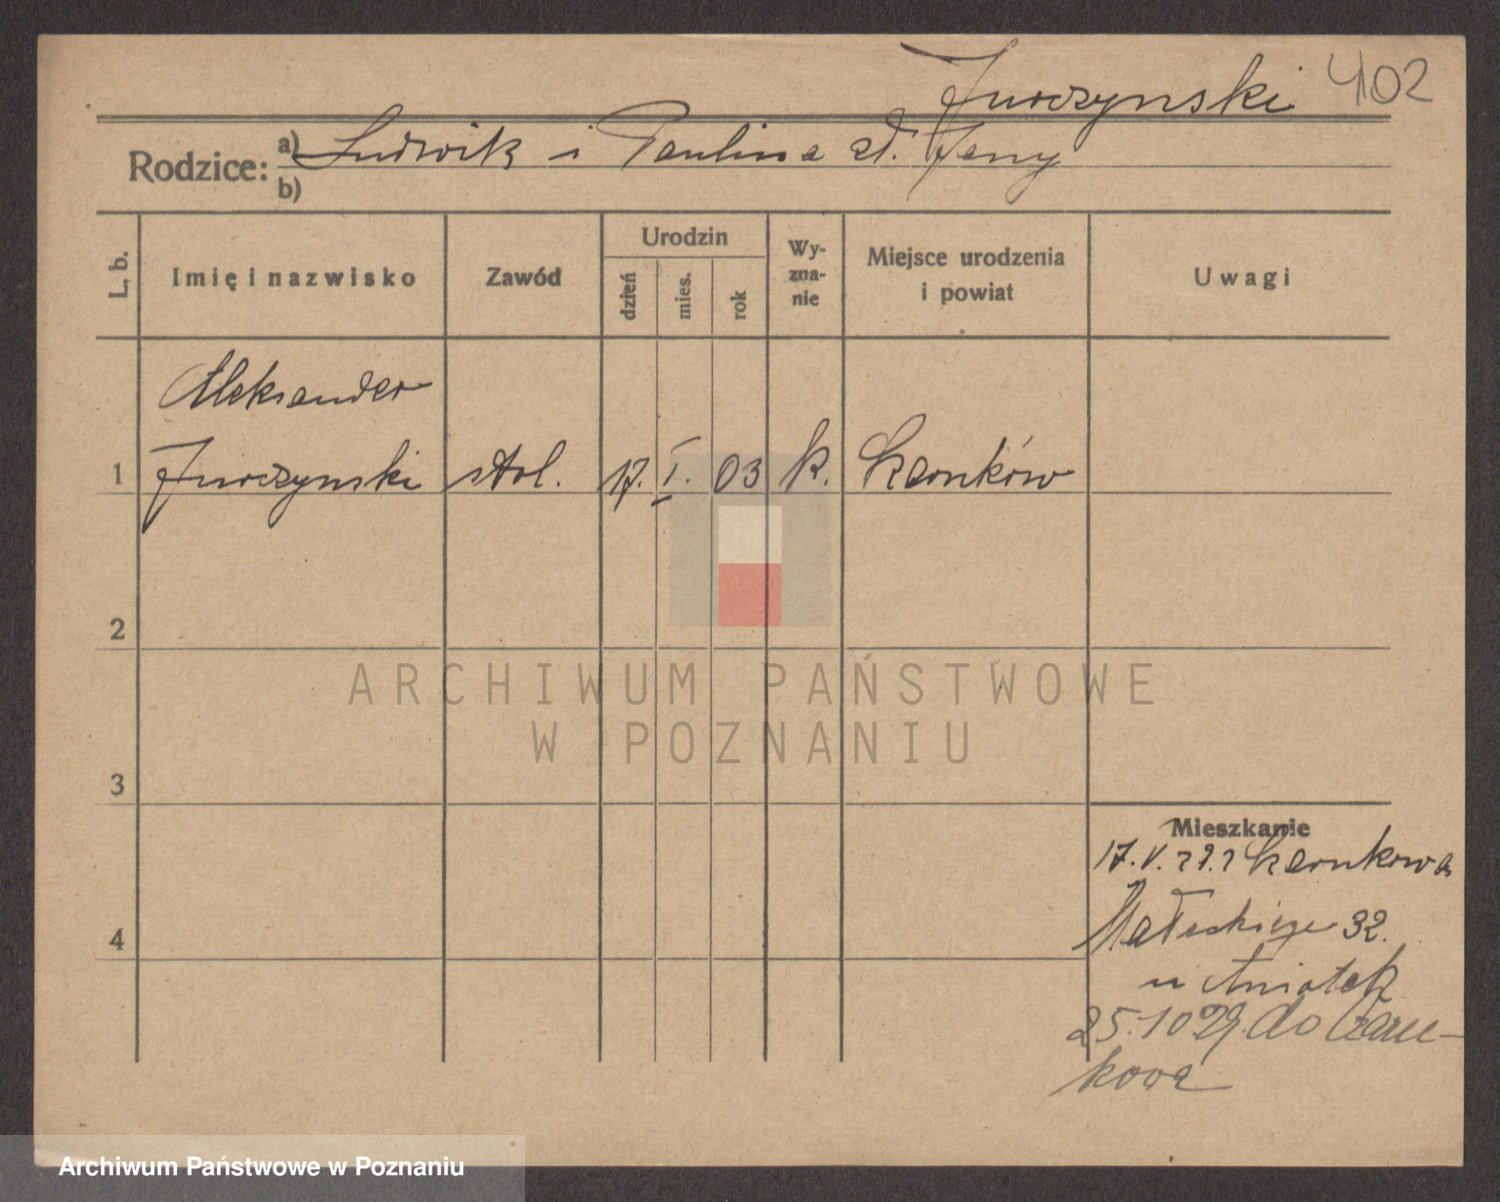 Jurczynski 402
Rodzice: a) Ludwik i Paulina zd. Jany
b)
L. b.
Imię i nazwisko
Zawód
Urodzin
dzień
mies.
rok
Wy-
zna-
nie
Miejsce urodzenia
i powiat
Uwagi
Aleksander
1 Jurczynski stol. 17. I. 03 k. Czarnków
2
3
4
Mieszkanie
17. V. 29. z Czarnkowa
Małeckiego 32.
u
25.10 29. do Czarn-
kowa
ARCHIWUM PAŃSTWOWE
W POZNANIU
Archiwum Państwowe w Poznaniu